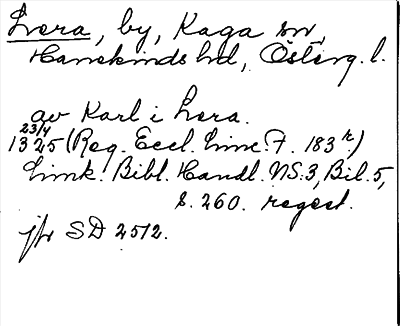 Lvera, by, Kaga sn,
Hanekinds hd, Österg. l.
av Karl i Lvera.
23/4
1325 (Reg. Eccl. Linc. F. 183 r.)
Link. Bibl. Handl. NS:3, Bil. 5,
s. 260. regest.
jfr SD 2512.